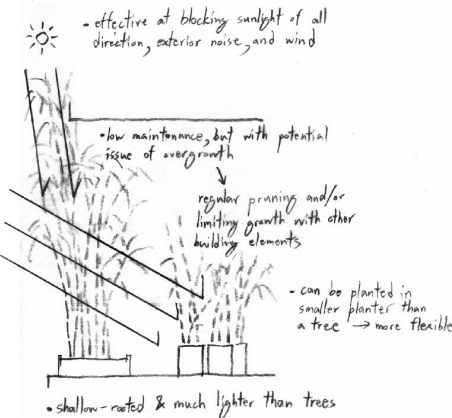 • effective at blocking sunlight of all
direction, exterior noise, and wind
• low maintenance, but with potential
issue of overgrowth
↓
regular pruning and/or
limiting growth with other
building elements
• can be planted in
smaller planter than
a tree → more flexible
• shallow-rooted & much lighter than trees